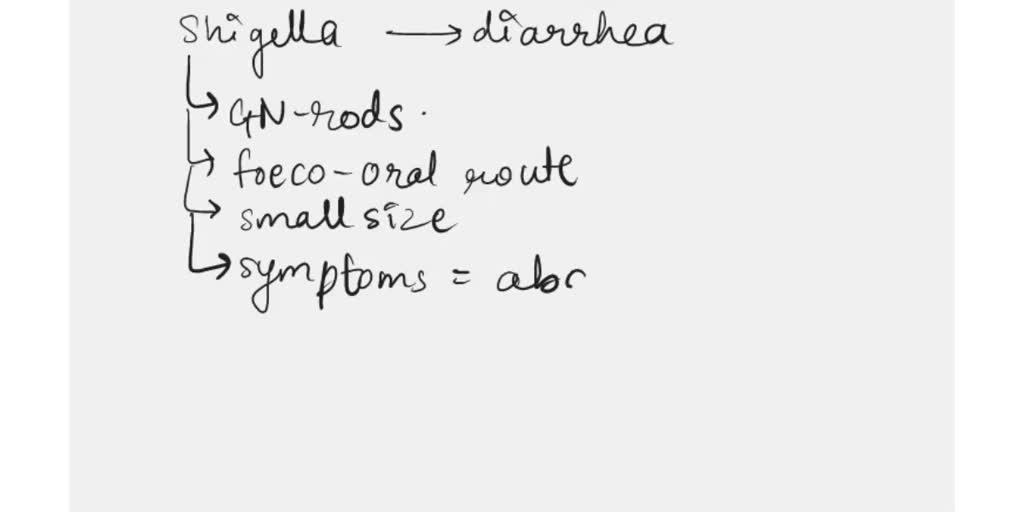 Shigella → diarrhea
↳ GN-rods.
↳ foeco-oral route
↳ small size
↳ symptoms = abo